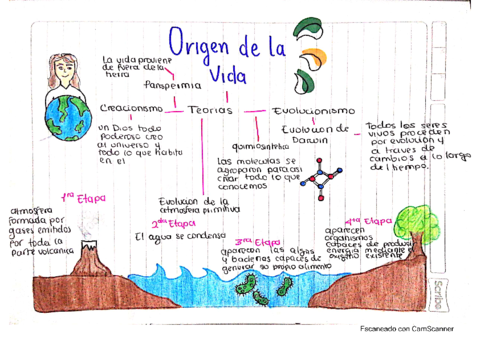 Origen de la
Vida
La vida proviene
de fuera de la
tierra
Panspermia
Creacionismo
Teorías
Evolucionismo
un Dios todo
poderoso creo
al universo y
todo lo que habita
en el
Evolucion de
Darwin
Todos los seres
vivos proceden
por evolución y
a traves de
cambios a lo largo
del tiempo.
quimiosintetica
las moleculas se
agruparon para asi
crear todo lo que
conocemos
Evolucion de la
atmosfera primitiva
1ra Etapa
atmosfera
formada por
gases emitidos
por toda la
parte volcanica
2da Etapa
El agua se condensa
3ra Etapa
aparecen las algas
y bacterias capaces de
generar su propio alimento
4ta Etapa
aparecen
organismos
capaces de producir
energia mediante el
oxigeno existente
Scribe
Escaneado con CamScanner